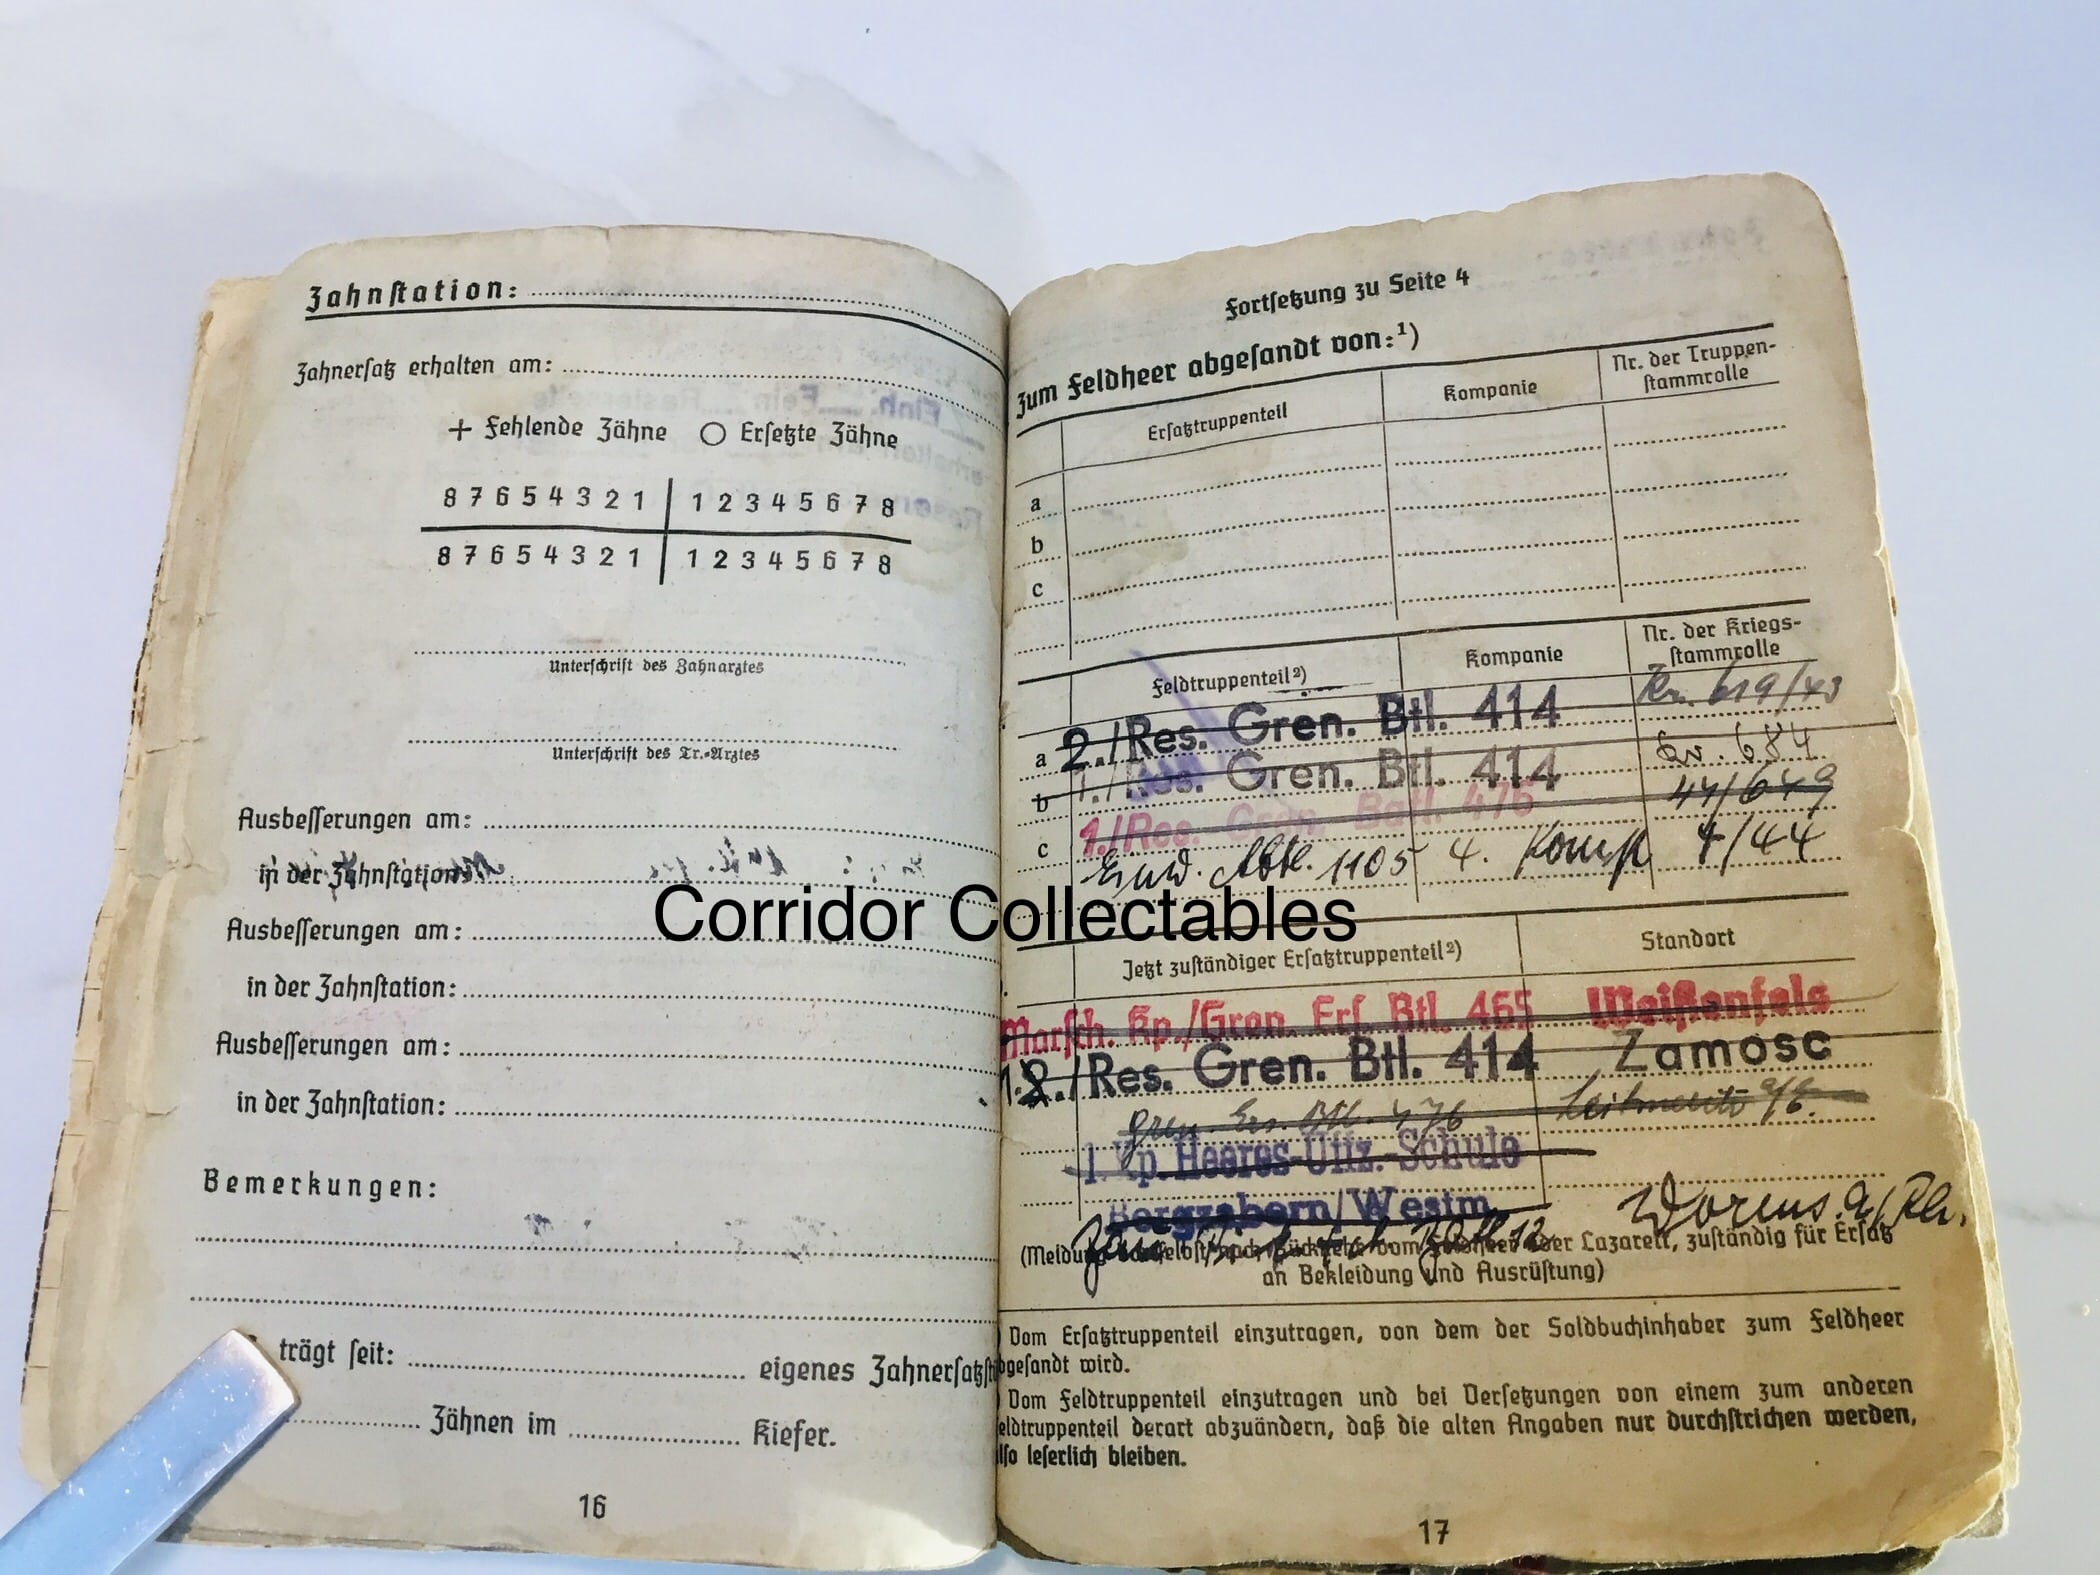 Zahnstation:
Zahnersatz erhalten am:
+ Fehlende Zähne ○ Ersetzte Zähne
8 7 6 5 4 3 2 1 | 1 2 3 4 5 6 7 8
8 7 6 5 4 3 2 1 | 1 2 3 4 5 6 7 8
Unterschrift des Zahnarztes
Unterschrift des Tr.-Arztes
Ausbesserungen am:
in der Zahnstation:
Ausbesserungen am:
in der Zahnstation:
Ausbesserungen am:
in der Zahnstation:
Bemerkungen:
trägt seit: eigenes Zahnersatzst
Zähnen im Kiefer.
16
Fortsetzung zu Seite 4
Zum Feldheer abgesandt von:¹)
Ersatztruppenteil Kompanie Nr. der Truppen-
stammrolle
a
b
c
Feldtruppenteil²) Kompanie Nr. der Kriegs-
stammrolle
a 2./Res. Gren. Btl. 414 Kr. 619/43
b 1./Res. Gren. Btl. 414 Kr. 684
1./Res. Gren. Batl. 476 44/649
c Entl. Abtl. 1105 4. Komp 4/44
Corridor Collectables
Jetzt zuständiger Ersatztruppenteil²) Standort
Marsch. Kp./Gren. Ers. Btl. 465 Weißenfels
1. 2./Res. Gren. Btl. 414 Zamosc
Gren. Ers. Btl. 476 Leitmeritz
1 Kp. Heeres-Uffz.-Schule
Bergzabern/Westm.
Worms a/Rh.
(Meldung vom Lazarett, zuständig für Ersatz
an Bekleidung und Ausrüstung)
) Vom Ersatztruppenteil einzutragen, von dem der Soldbuchinhaber zum Feldheer
bgesandt wird.
) Vom Feldtruppenteil einzutragen und bei Versetzungen von einem zum anderen
eldtruppenteil derart abzuändern, daß die alten Angaben nur durchstrichen werden,
lso leserlich bleiben.
17